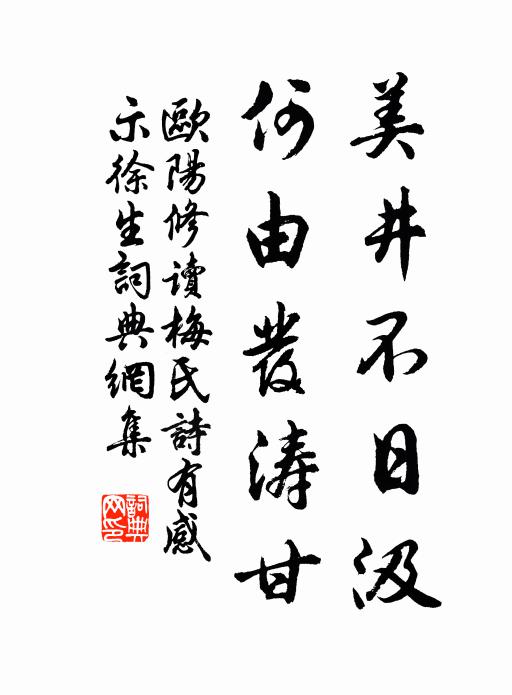 美井不日汲
何由發濤甘
歐陽修讀梅氏詩有感
示徐生詞典網集
詞典
网印